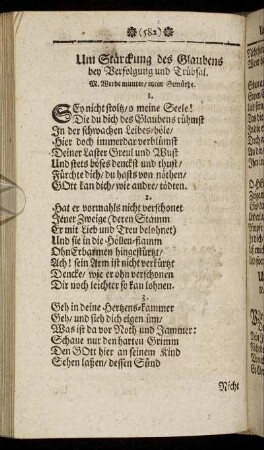 (582)
Um Stärckung des Glaubens
bey Verfolgung und Trübsal.
M. Werde munter/ mein Gemüthe.
1.
SEy nicht stoltz/ o meine Seele!
Die du dich des Glaubens rühmst
In der schwachen Leibes-höle/
Hier doch immerdar verblümst
Deiner Laster Greul und Wust
Und stets böses denckst und thust/
Fürchte dich/ du hasts von nöthen/
GOtt kan dich/ wie andre/ tödten.
2.
Hat er vormahls nicht verschonet
Jener Zweige (deren Stamm
Er mit Lieb und Treu belohnet)
Und sie in die Höllen-flamm
Ohn Erbarmen hingestürtzt/
Ach! sein Arm ist nicht verkürtzt
Dencke/ wie er ohn verschonen
Dir noch leichter so kan lohnen.
3.
Geh in deine Hertzens-kammer
Geh/ und sieh dich eigen üm/
Was ist da vor Noth und Jammer:
Schaue nur den harten Grimm
Den GOtt hier an seinem Kind
Sehen laßen/ dessen Sünd
Nicht